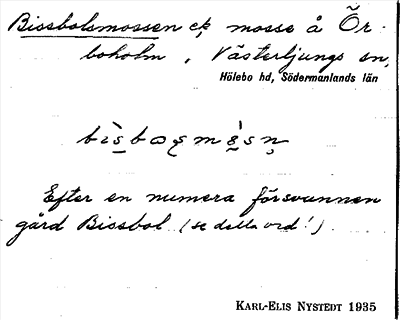 Bissbolsmossen ep mosse å Ör-
boholm, Västerljungs sn,
Hölebo hd, Södermanlands län
Efter en numera försvunnen
gård Bissbol (se detta ord!)
KARL-ELIS NYSTEDT 1935